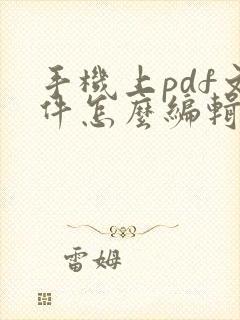 手機上pdf文
件怎麼編輯
雷姆